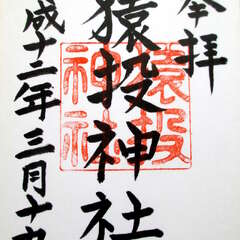 奉拝
猿投神社
猿投
神社
平成十二年三月十九